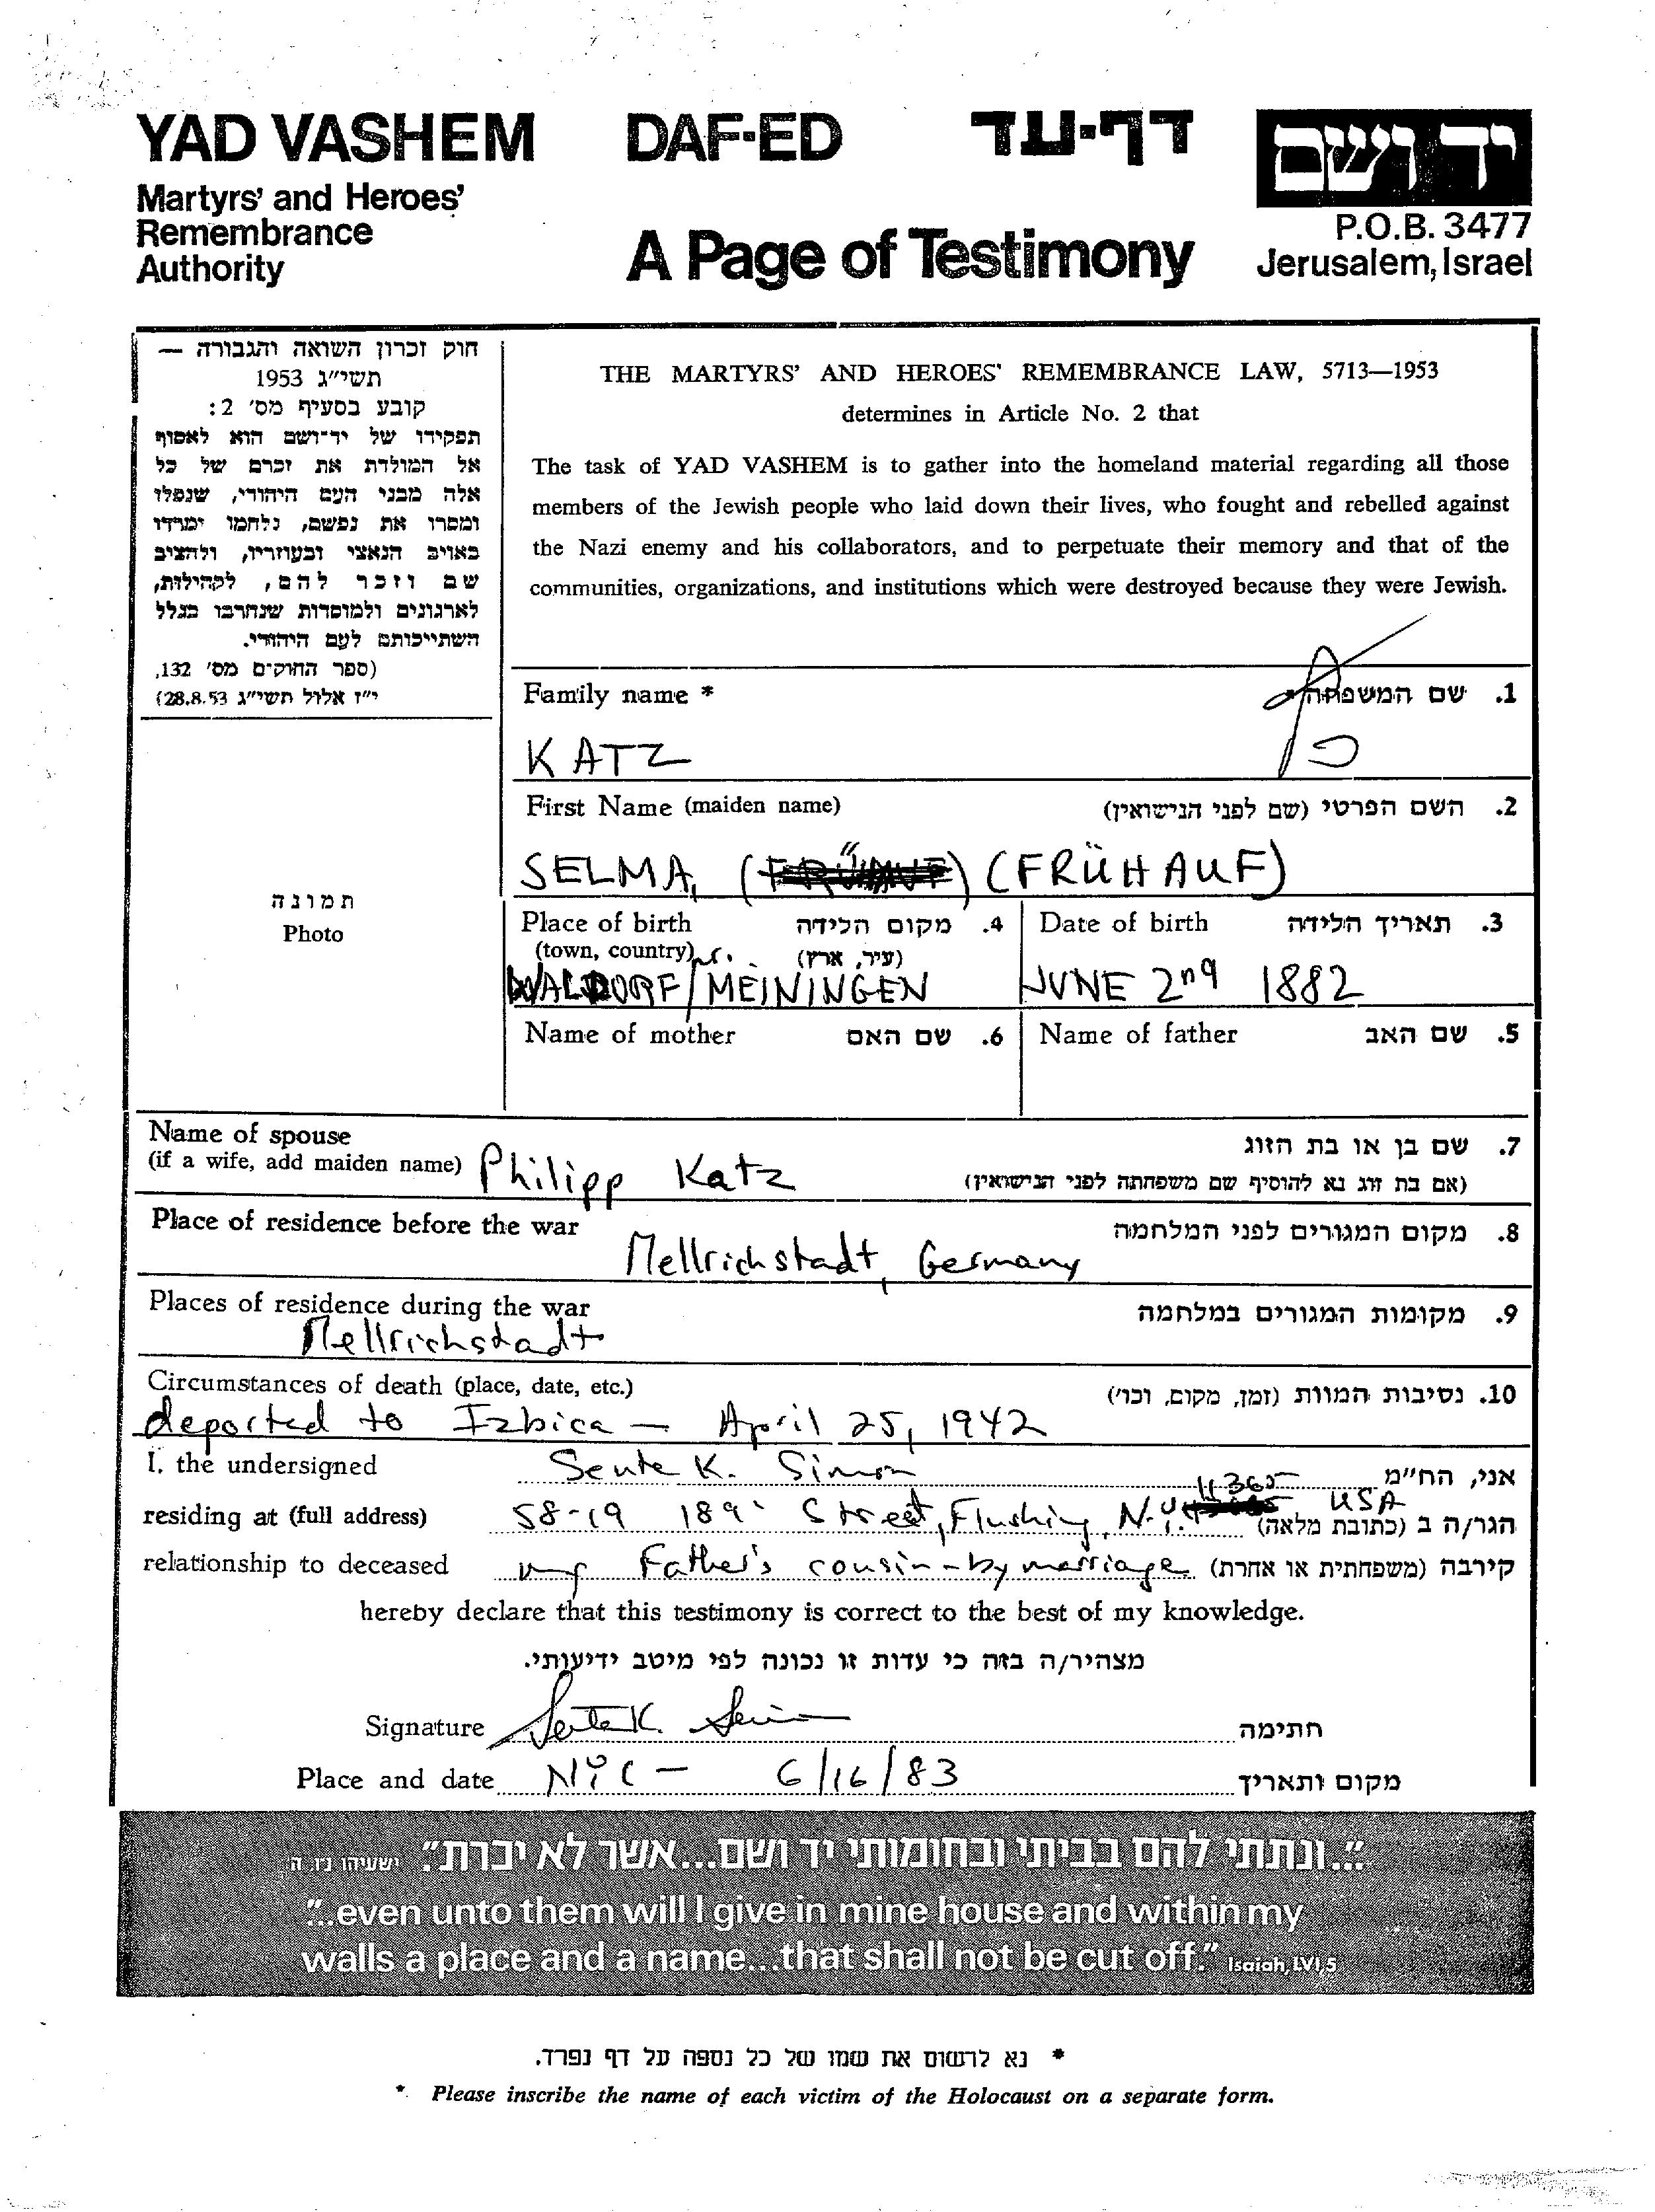 YAD VASHEM DAF-ED דף-עד יד ושם
Martyrs' and Heroes'
Remembrance
Authority
A Page of Testimony
P.O.B. 3477
Jerusalem, Israel
חוק זכרון השואה והגבורה —
תשי״ג 1953
קובע בסעיף מס׳ 2:
תפקידו של יד־ושם הוא לאסוף
אל המולדת את זכרם של כל
אלה מבני העם היהודי, שנפלו
ומסרו את נפשם, נלחמו ומרדו
באויב הנאצי ובעוזריו, ולהציב
שם וזכר להם, לקהילות,
לארגונים ולמוסדות שנחרבו בגלל
השתייכותם לעם היהודי.
(ספר החוקים מס׳ 132,
י״ז אלול תשי״ג 28.8.53)
THE MARTYRS' AND HEROES' REMEMBRANCE LAW, 5713—1953
determines in Article No. 2 that
The task of YAD VASHEM is to gather into the homeland material regarding all those
members of the Jewish people who laid down their lives, who fought and rebelled against
the Nazi enemy and his collaborators, and to perpetuate their memory and that of the
communities, organizations, and institutions which were destroyed because they were Jewish.
Family name * 1. שם המשפחה
KATZ
First Name (maiden name) 2. השם הפרטי (שם לפני הנישואין)
SELMA, (FRÜHAUF)
תמונה
Photo
Place of birth 4. מקום הלידה
(town, country) (עיר, ארץ)
WALDORF/MEININGEN
Date of birth 3. תאריך הלידה
JUNE 2nd 1882
Name of mother 6. שם האם
Name of father 5. שם האב
Name of spouse 7. שם בן או בת הזוג
(if a wife, add maiden name) Philipp Katz (אם בת זוג נא להוסיף שם משפחתה לפני הנישואין)
Place of residence before the war 8. מקום המגורים לפני המלחמה
Mellrichstadt, Germany
Places of residence during the war 9. מקומות המגורים במלחמה
Mellrichstadt
Circumstances of death (place, date, etc.) 10. נסיבות המוות (זמן, מקום, וכו׳)
deported to Izbica — April 25, 1942
I, the undersigned Sente K. Simon אני, הח״מ
residing at (full address) 58-19 189 Street, Flushing, N.Y. 11365 USA הגר/ה ב (כתובת מלאה)
relationship to deceased my Father's cousin-by marriage קירבה (משפחתית או אחרת)
hereby declare that this testimony is correct to the best of my knowledge.
מצהיר/ה בזה כי עדות זו נכונה לפי מיטב ידיעותי.
Signature Sente K. Simon חתימה
Place and date NYC — 6/16/83 מקום ותאריך
"...ונתתי להם בביתי ובחומותי יד ושם...אשר לא יכרת". ישעיהו נו, ה
"...even unto them will I give in mine house and within my
walls a place and a name...that shall not be cut off." Isaiah, LVI,5
* נא לרשום את שמו של כל נספה על דף נפרד.
* Please inscribe the name of each victim of the Holocaust on a separate form.